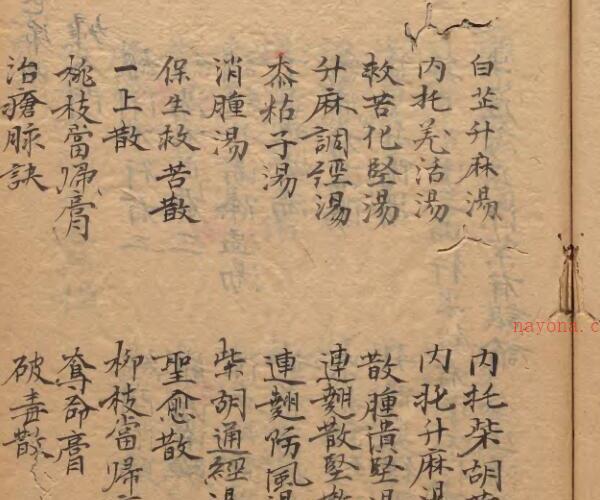 白芷升麻湯
內托羌活湯
救苦化堅湯
升麻調經湯
黍粘子湯
消腫湯
保生救苦散
一上散
桃枝當帰膏
治瘡脉訣
內托柴胡
內托升麻湯
散腫潰堅湯
連翹散堅
連翹防風湯
柴胡通經湯
聖愈散
柳枝當帰
奪命膏
破毒散
nayona.c